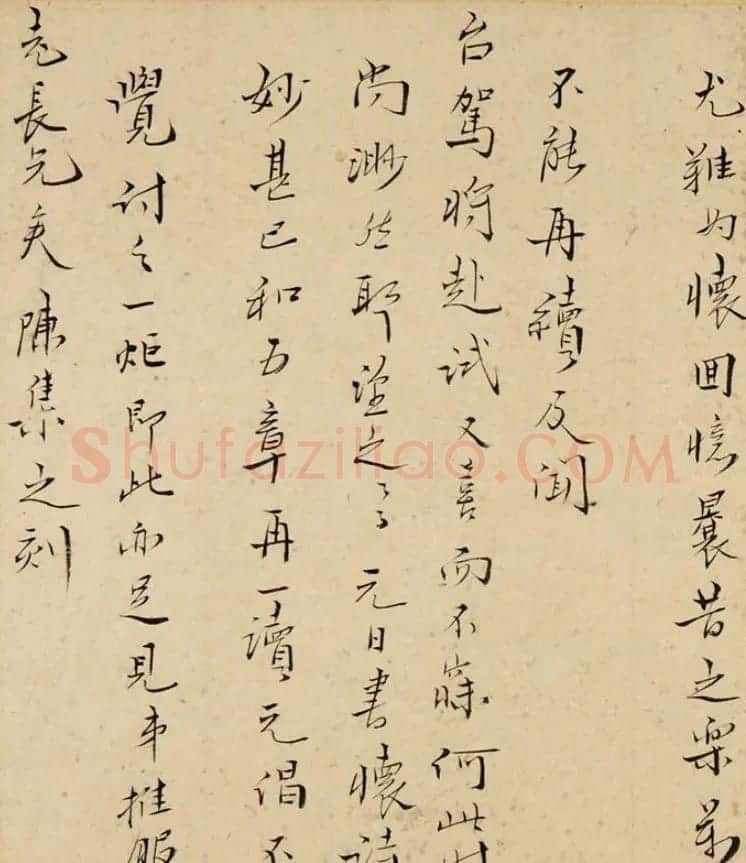 尤難為懷回憶曩昔之樂萬
不能再續及聞
台駕將赴試又喜而不寐何此時
尚渺然耶望之望之元日書懷詩
妙甚已和五章再一讀元倡不
覺討之一炬即此亦足見弟推服
老長兄矣陳集之刻
Shufaziliao.COM